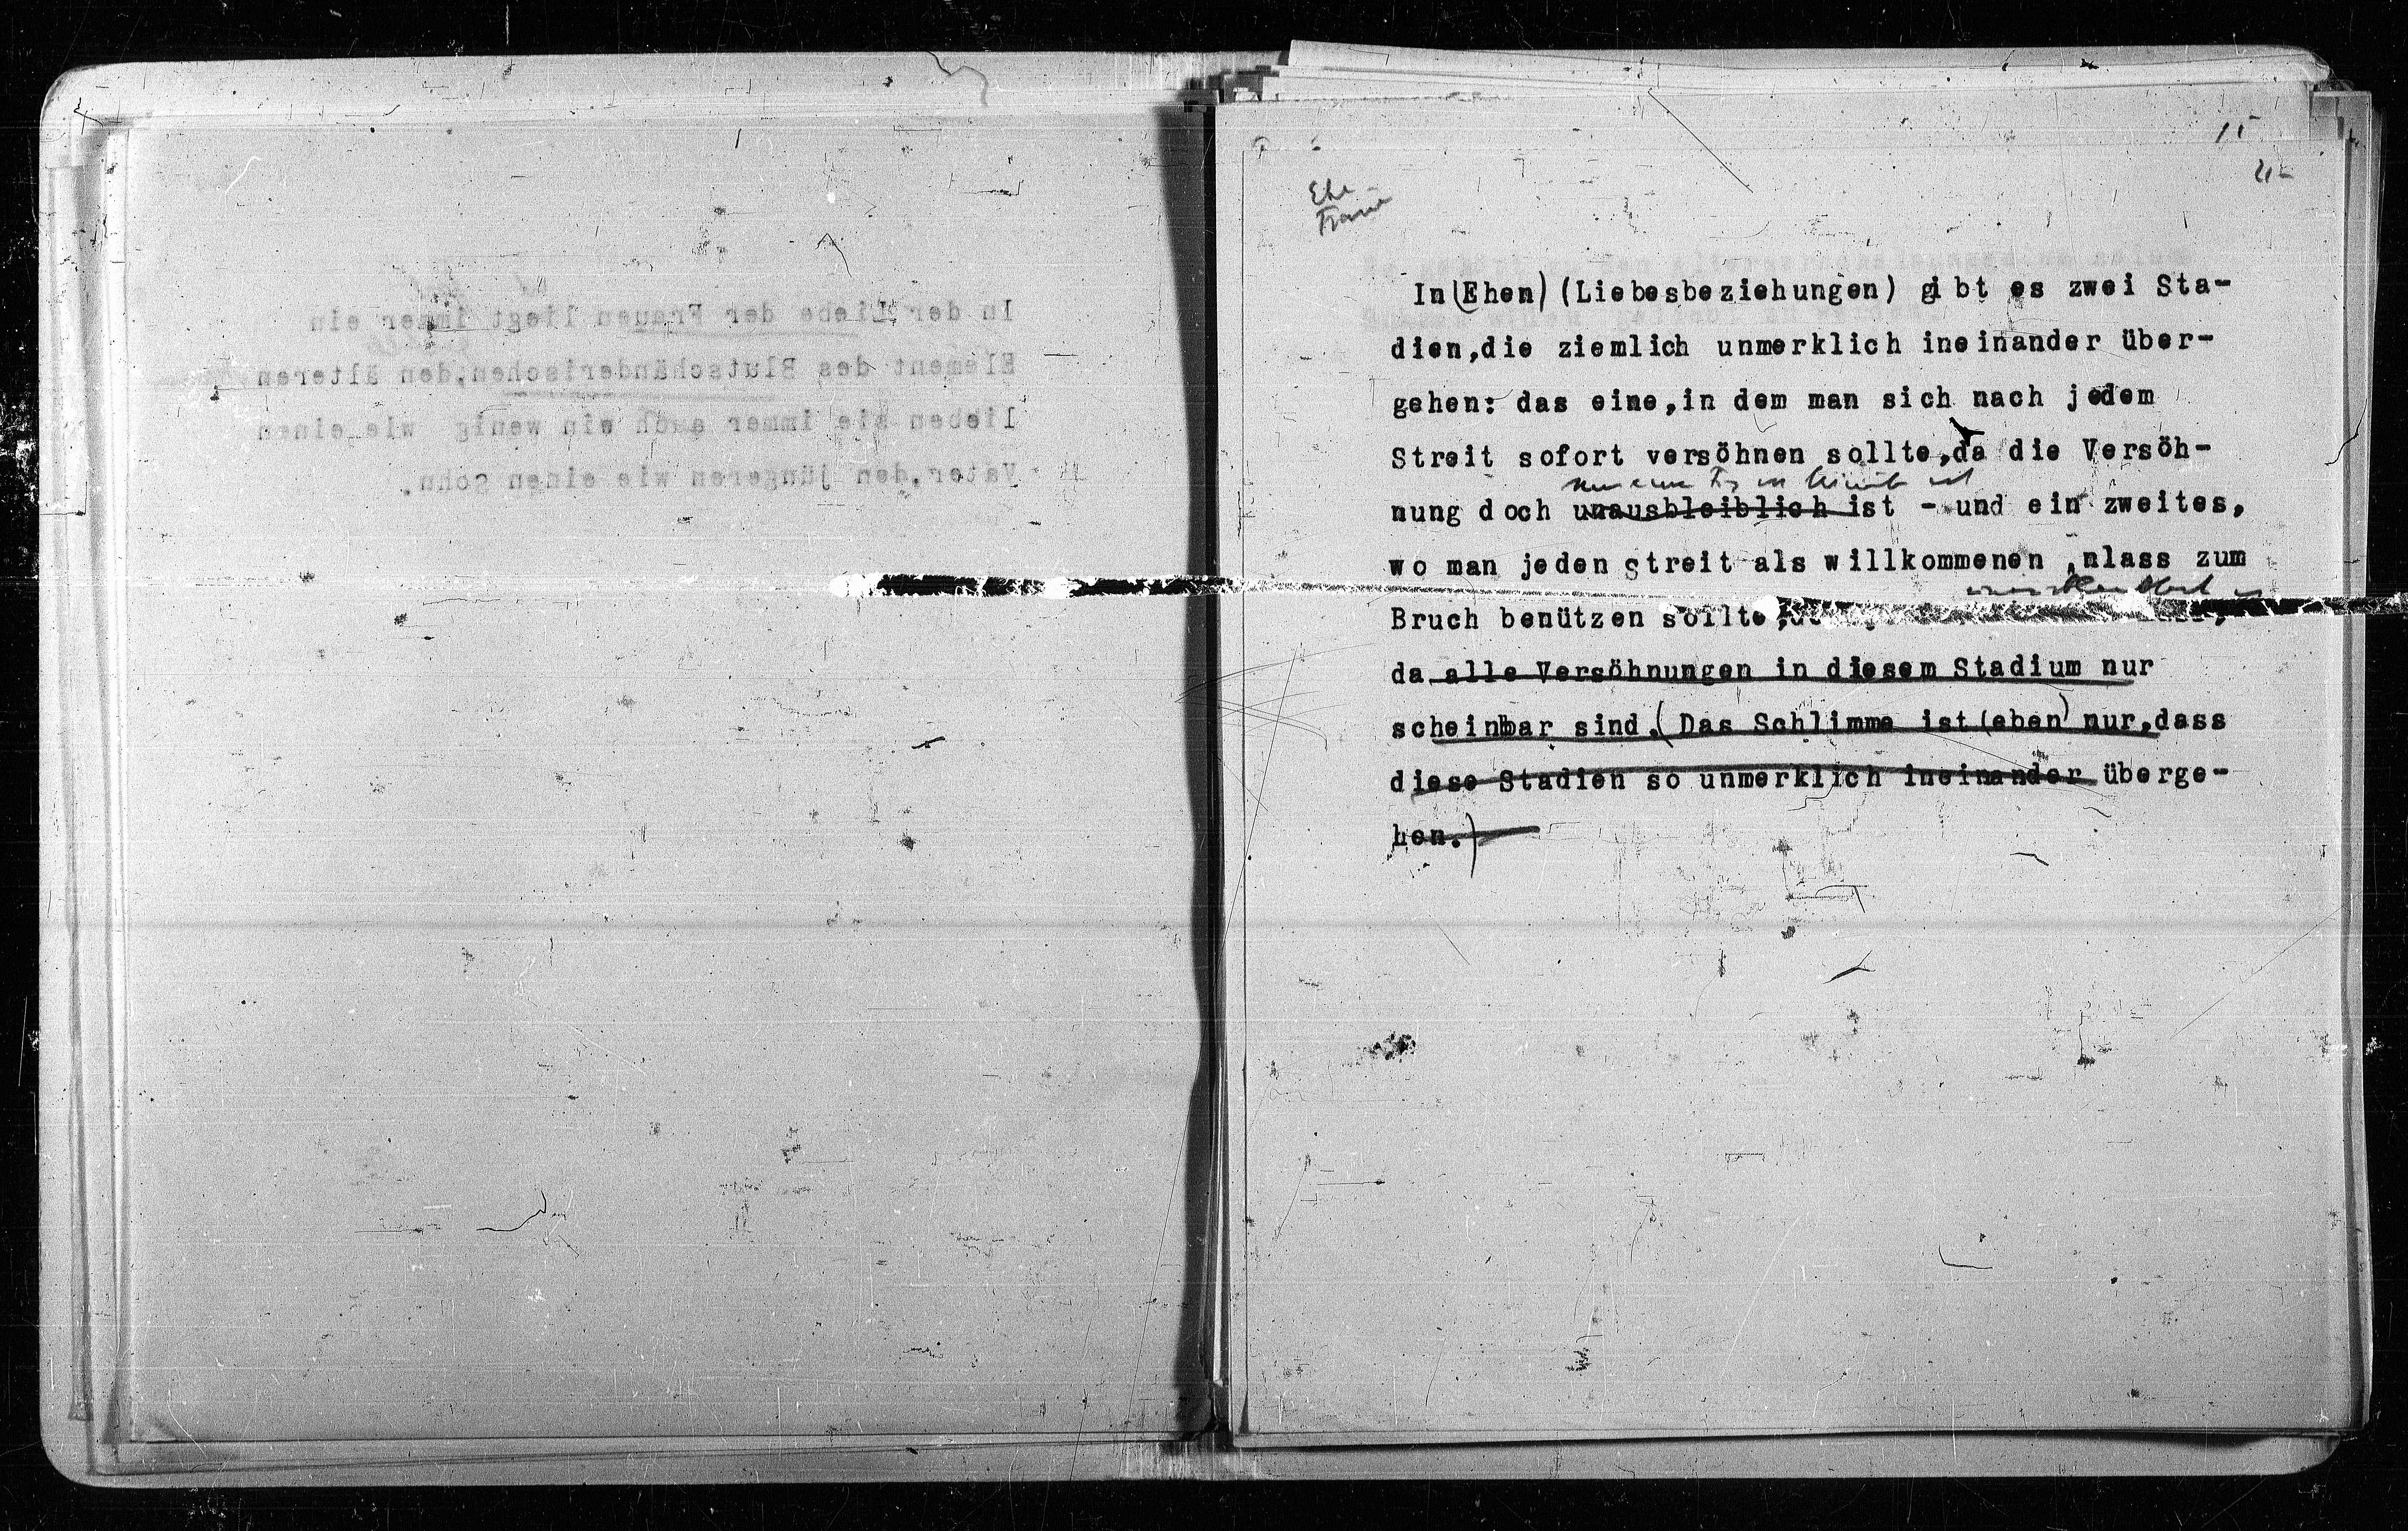 In der Liebe der Frauen liegt immer ein
Element des Blutschänderischen, den älteren
lieben sie immer auch ein wenig wie einen
Vater, den jüngeren wie einen Sohn.
15
Ehe
In (Ehen) (Liebesbeziehungen) gibt es zwei Sta-
dien,die ziemlich unmerklich ineinander über-
gehen: das eine,in dem man sich nach jedem
Streit sofort versöhnen sollte,da die Versöh-
nung doch unausbleiblich ist - und ein zweites,
wo man jeden Streit als willkommenen nlass zum
Bruch benützen sollte,
da alle Versöhnungen in diesem Stadium nur
scheinbar sind.(Das Schlimme ist (eben) nur,dass
diese Stadien so unmerklich ineinander überge-
hen.)